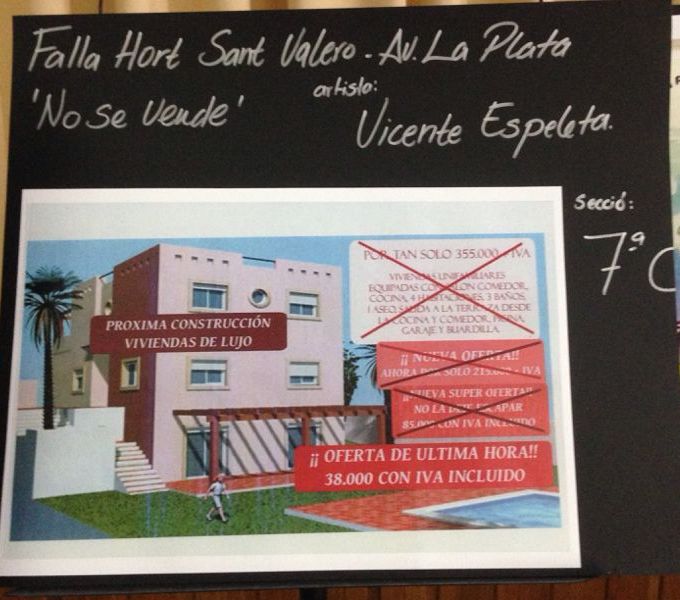 Falla Hort Sant Valero - Av. La Plata
'No se vende'
artista:
Vicente Espeleta.
Secció:
7ª C
POR TAN SOLO 355.000 + IVA
VIVIENDAS UNIFAMILIARES
EQUIPADAS CON SALON COMEDOR,
COCINA, 4 HABITACIONES, 3 BAÑOS,
1 ASEO, SALIDA A LA TERRAZA DESDE
LA COCINA Y COMEDOR, PISCINA,
GARAJE Y BUARDILLA.
PROXIMA CONSTRUCCIÓN
VIVIENDAS DE LUJO
¡¡ NUEVA OFERTA!!
AHORA POR SOLO 215.000 + IVA
¡¡NUEVA SUPER OFERTA!!
NO LA DEJE ESCAPAR
85.000 CON IVA INCLUIDO
¡¡ OFERTA DE ULTIMA HORA!!
38.000 CON IVA INCLUIDO